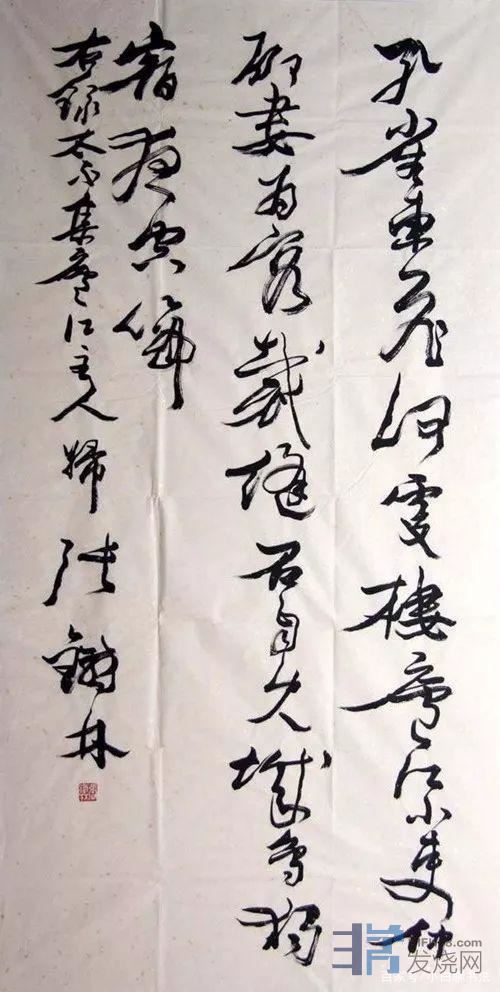 孔雀東飛何處棲廬江小吏仲
卿妻為客裁縫君自見城烏獨
宿夜空啼
右録太白集廬江主人婦 張鐵林
发烧网